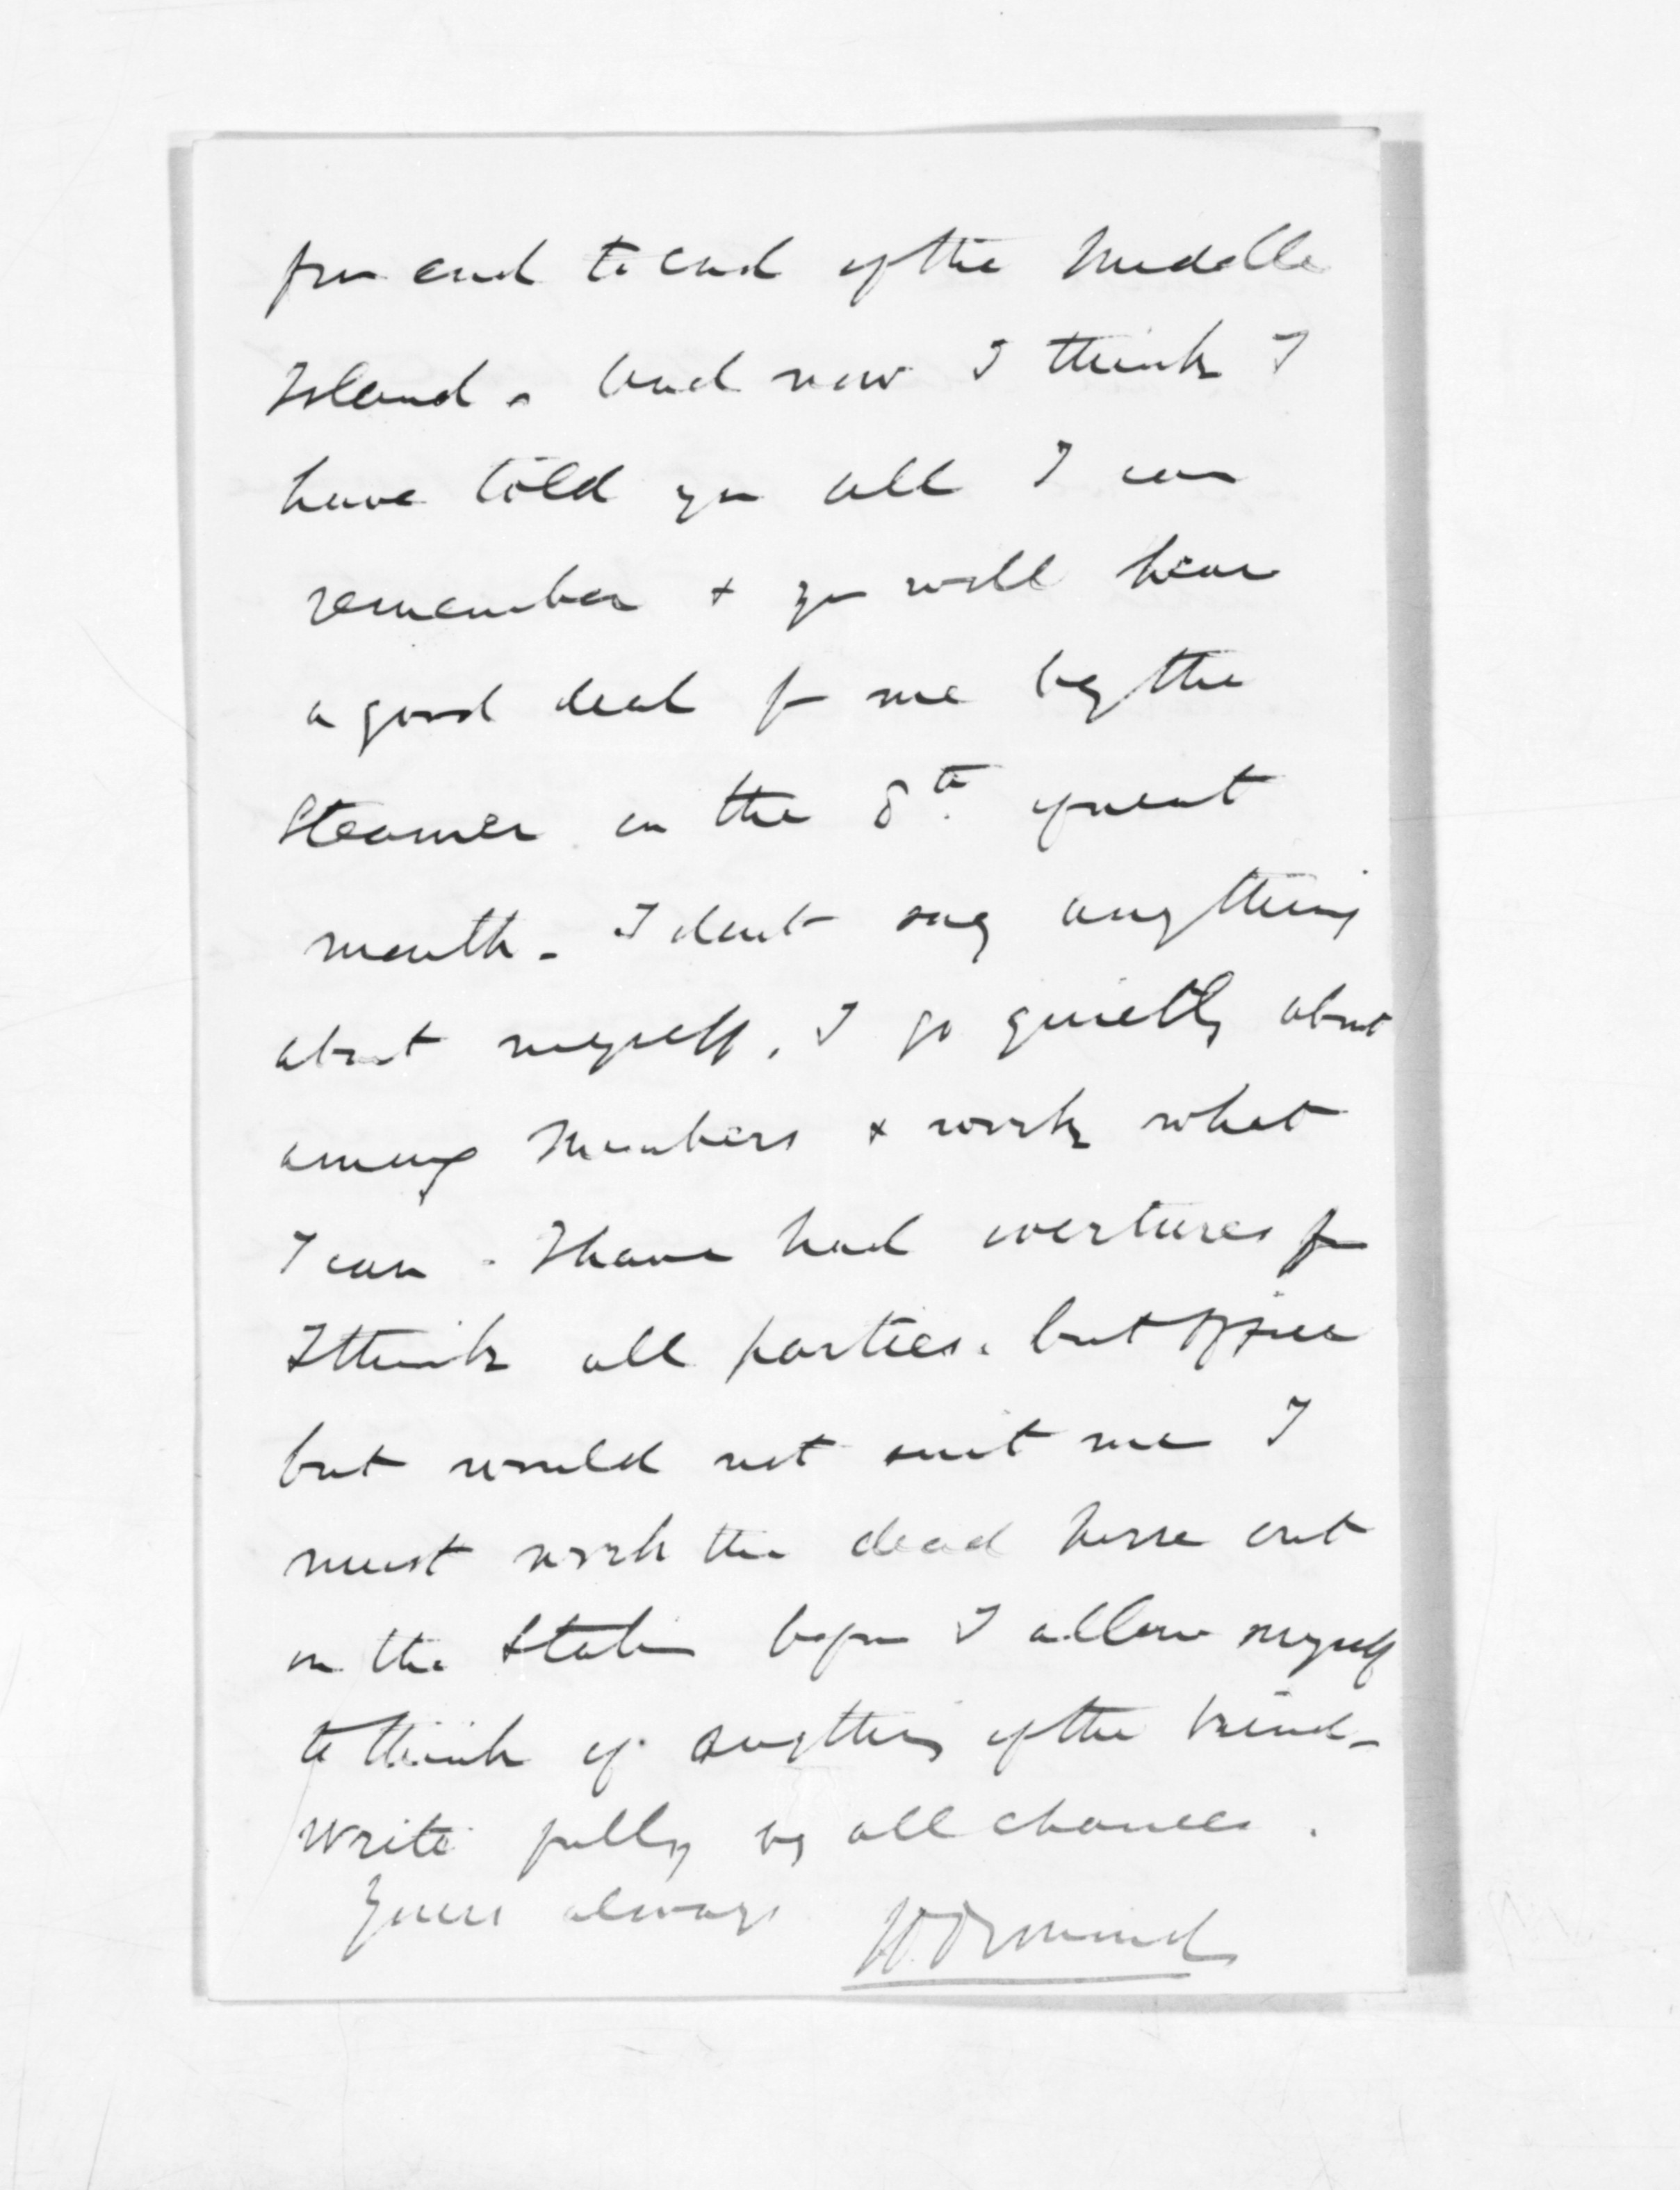 from end to end of the Middle
Island. And now I think I
have told you all I can
remember & you will hear
a good deal fm me by the
Steamer on the 8th of next
month. I dont say anything
about myself, I go quietly about
among Members & work what
I can. I have had overtures fm
I think all parties. but office
but would not suit me I
must work the dead horse out
on the Station before I allow myself
to think of anything of the kind.
write fully by all chances.
Yours always W. Ormond